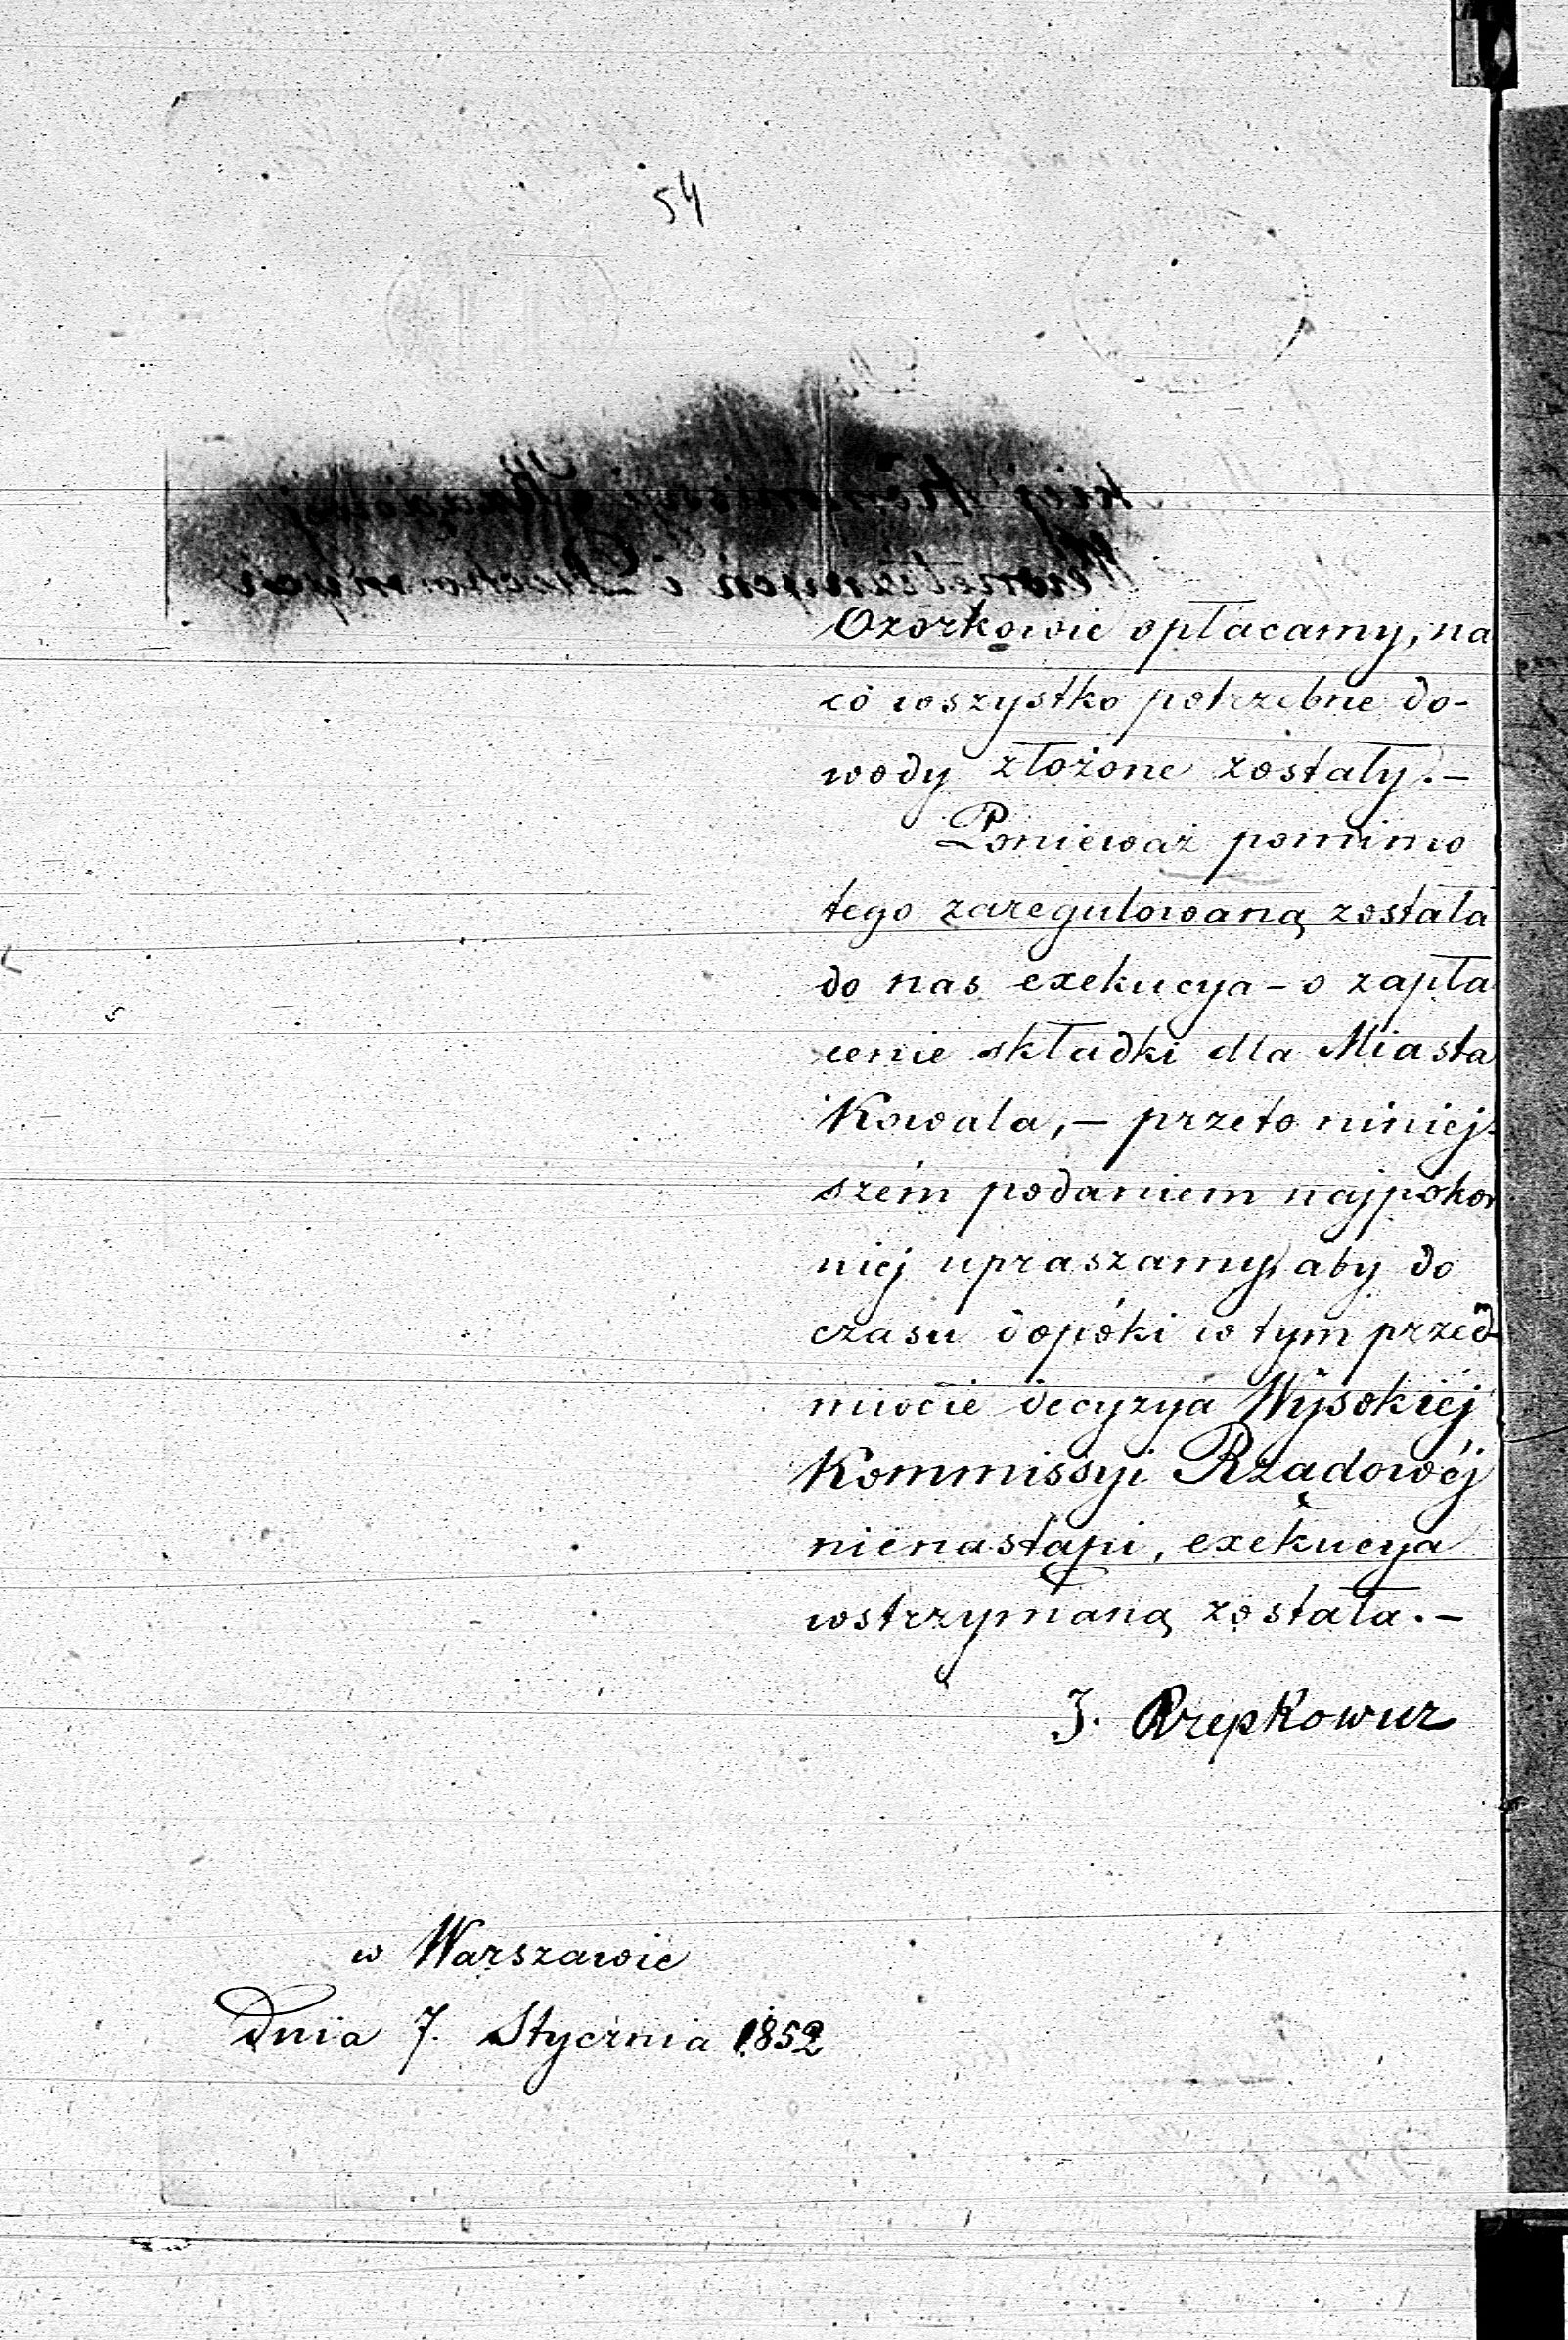 54
Ozorkowie opłacamy, na
co wszystko potrzebne do-
wody złożone zostały.-
Ponieważ pomimo
tego zaregulowaną została
do nas exekucya - o zapła
cenie składki dla Miasta
Kowala, - przeto niniej-
szém podaniem najpokor
niej upraszamy, aby do
czasu dopóki w tym przed-
miocie decyzya Wysokiéj
Kommissyi Rządowéj
nienastąpi, exekucya
wstrzymaną została.-
J. Rzepkowicz
w Warszawie
Dnia 7. Stycznia 1852